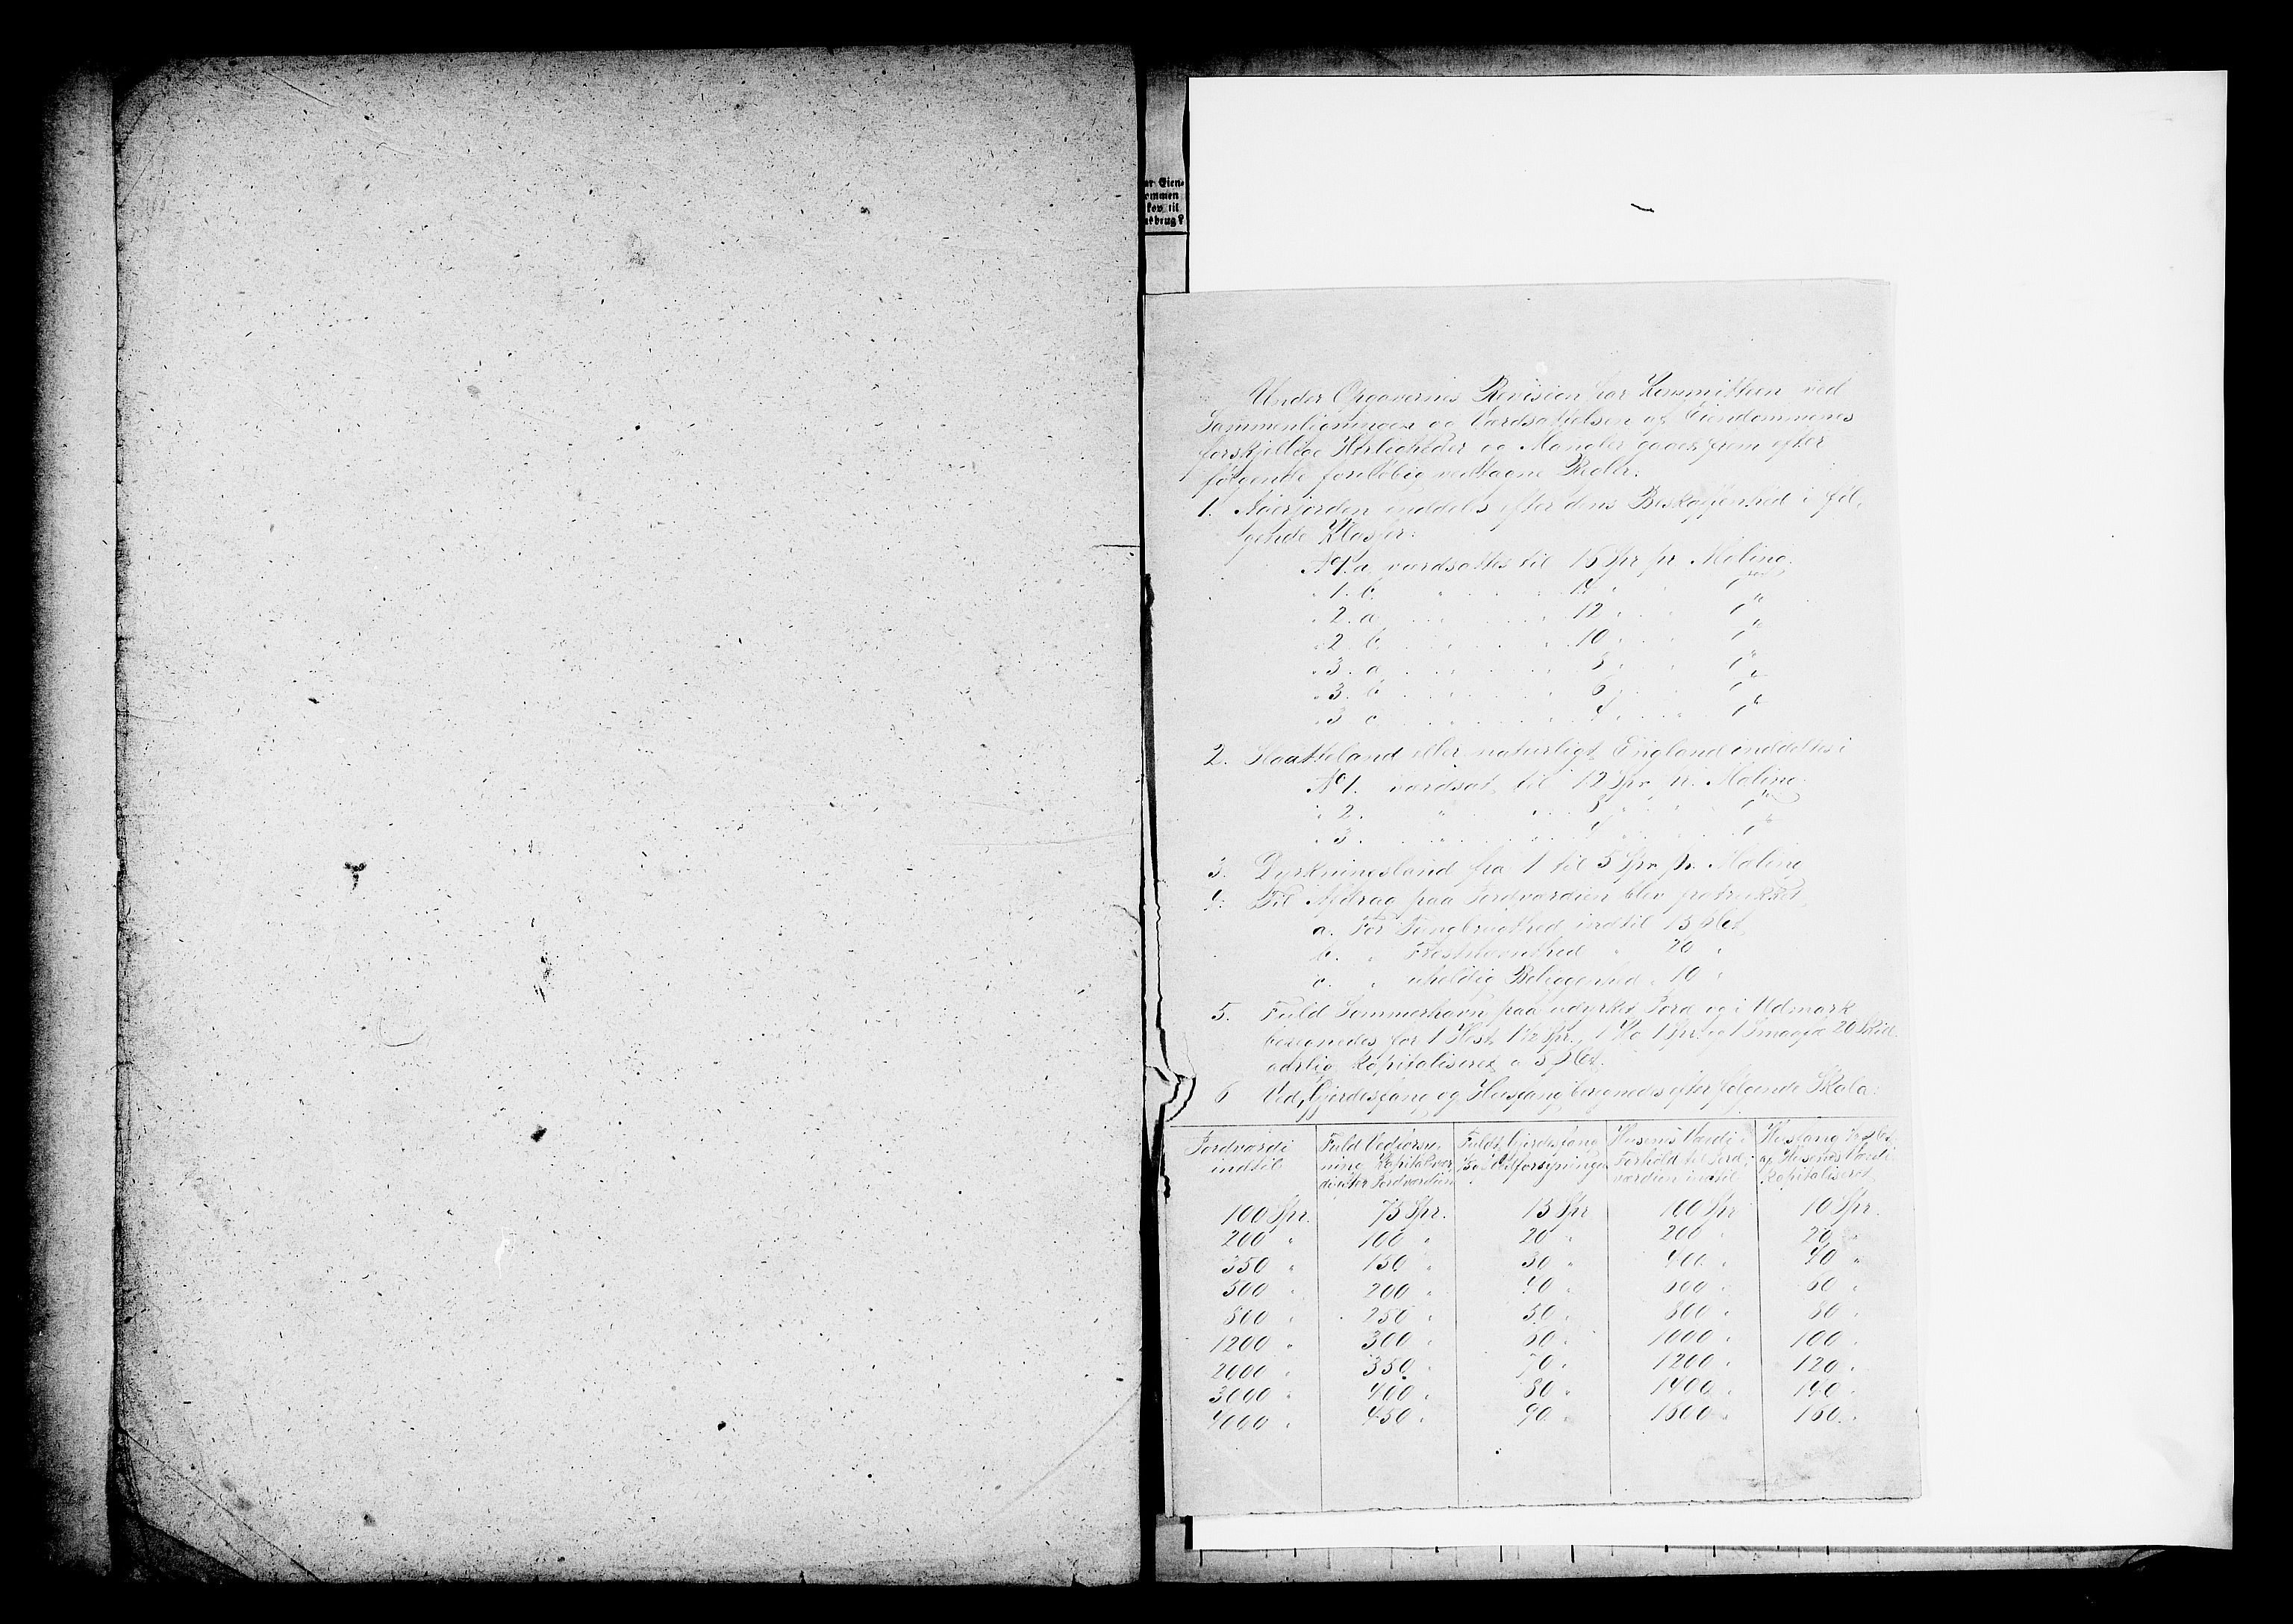 ar Eien-
ommen
kov til
usbrug?
Under Opgavernes Revision har Kommitteen ved
Sammenligningen og Værdsættelsen af Eiendommenes
forskjellige Herligheder og Mangler gaaet frem efter
følgende foreløbig vedtagne Regler:
1. Agerjorden inddeles efter dens Beskaffenhed i føl-
gende Klasser:
No 1. a værdsættes til 15 Spr pr. Maling.
" 1. b. " 14 " "
" 2. a " 12 " "
" 2. b. " 10 " "
" 3. a " 8 " "
" 3. b " 6 " "
" 3. c " 4 " "
2. Slaatteland eller naturligt England inddeltes i
No 1. værdsat til 12 Spr pr. Maling.
" 2. " 8 " "
" 3. " 4 " "
3. Dyrkningsland fra 1 til 5 Spr. pr. Maling
4. Til Afdrag paa Jordværdien blev fratrukket
a. For Tungbrugthed indtil 15 pCt.
b. " Frostlændthed " 20 "
c. " uheldig Beliggenhed " 10 "
5. Fuld Sommerhavn paa udyrket Jord og i Udmark
beregnedes for 1 Hest 1½ Spr., 1 Ko 1 Spr. og 1 Smaafæ 20 Skil.
aarlig kapitaliseret a 5 pCt.
6 Ved, Gjerdefang og Husfang beregnedes efter følgende Skala.
Jordværdi | Fuld Vedforsy- | Fuldt Gjerdefang | Husenes Værdi i | Husfang
indtil | ning Kapitalvær- | | Forhold til Jord- | af Husenes Værdi
| di efter Jordværdien | | værdien indtil | kapitaliseret
100 Spr. | 75 Spr. | 15 Spr | 100 Spr | 10 Spr.
200 " | 100 " | 20 " | 200 " | 20 "
350 " | 150 " | 30 " | 400 " | 40 "
500 " | 200 " | 40 " | 600 " | 60 "
800 " | 250 " | 50 " | 800 " | 80 "
1200 " | 300 " | 60 " | 1000 " | 100 "
2000 " | 350 " | 70 " | 1200 " | 120 "
3000 " | 400 " | 80 " | 1400 " | 140 "
4000 " | 450 " | 90 " | 1600 " | 160 "